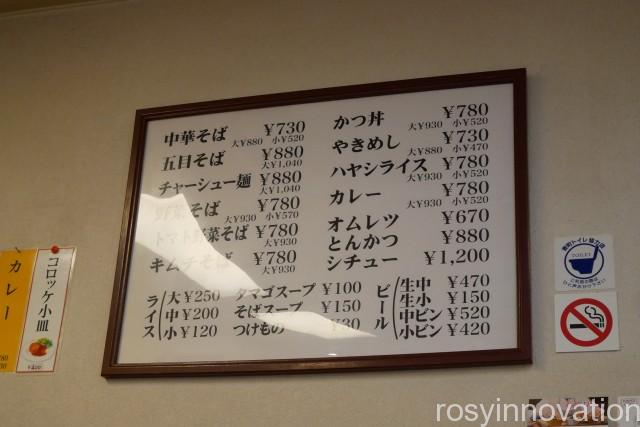 中華そば ¥730
大¥880 小¥520
五目そば ¥880
大¥1,040
チャーシュー麺 ¥880
大¥1,040
野菜そば ¥780
大¥930 小¥570
トマト野菜そば ¥780
大¥930
キムチそば ¥780
大¥930
かつ丼 ¥780
大¥930 小¥520
やきめし ¥730
大¥880 小¥470
ハヤシライス ¥780
大¥930 小¥520
カレー ¥780
大¥930 小¥520
オムレツ ¥670
とんかつ ¥880
シチュー ¥1,200
ライス
大 ¥250
中 ¥200
小 ¥120
タマゴスープ ¥100
そばスープ ¥150
つけもの
ビール
生中 ¥470
生小 ¥150
中ビン ¥520
小ビン ¥420
カレー
コロッケ小皿
¥400
TOILET
rosyinnovation